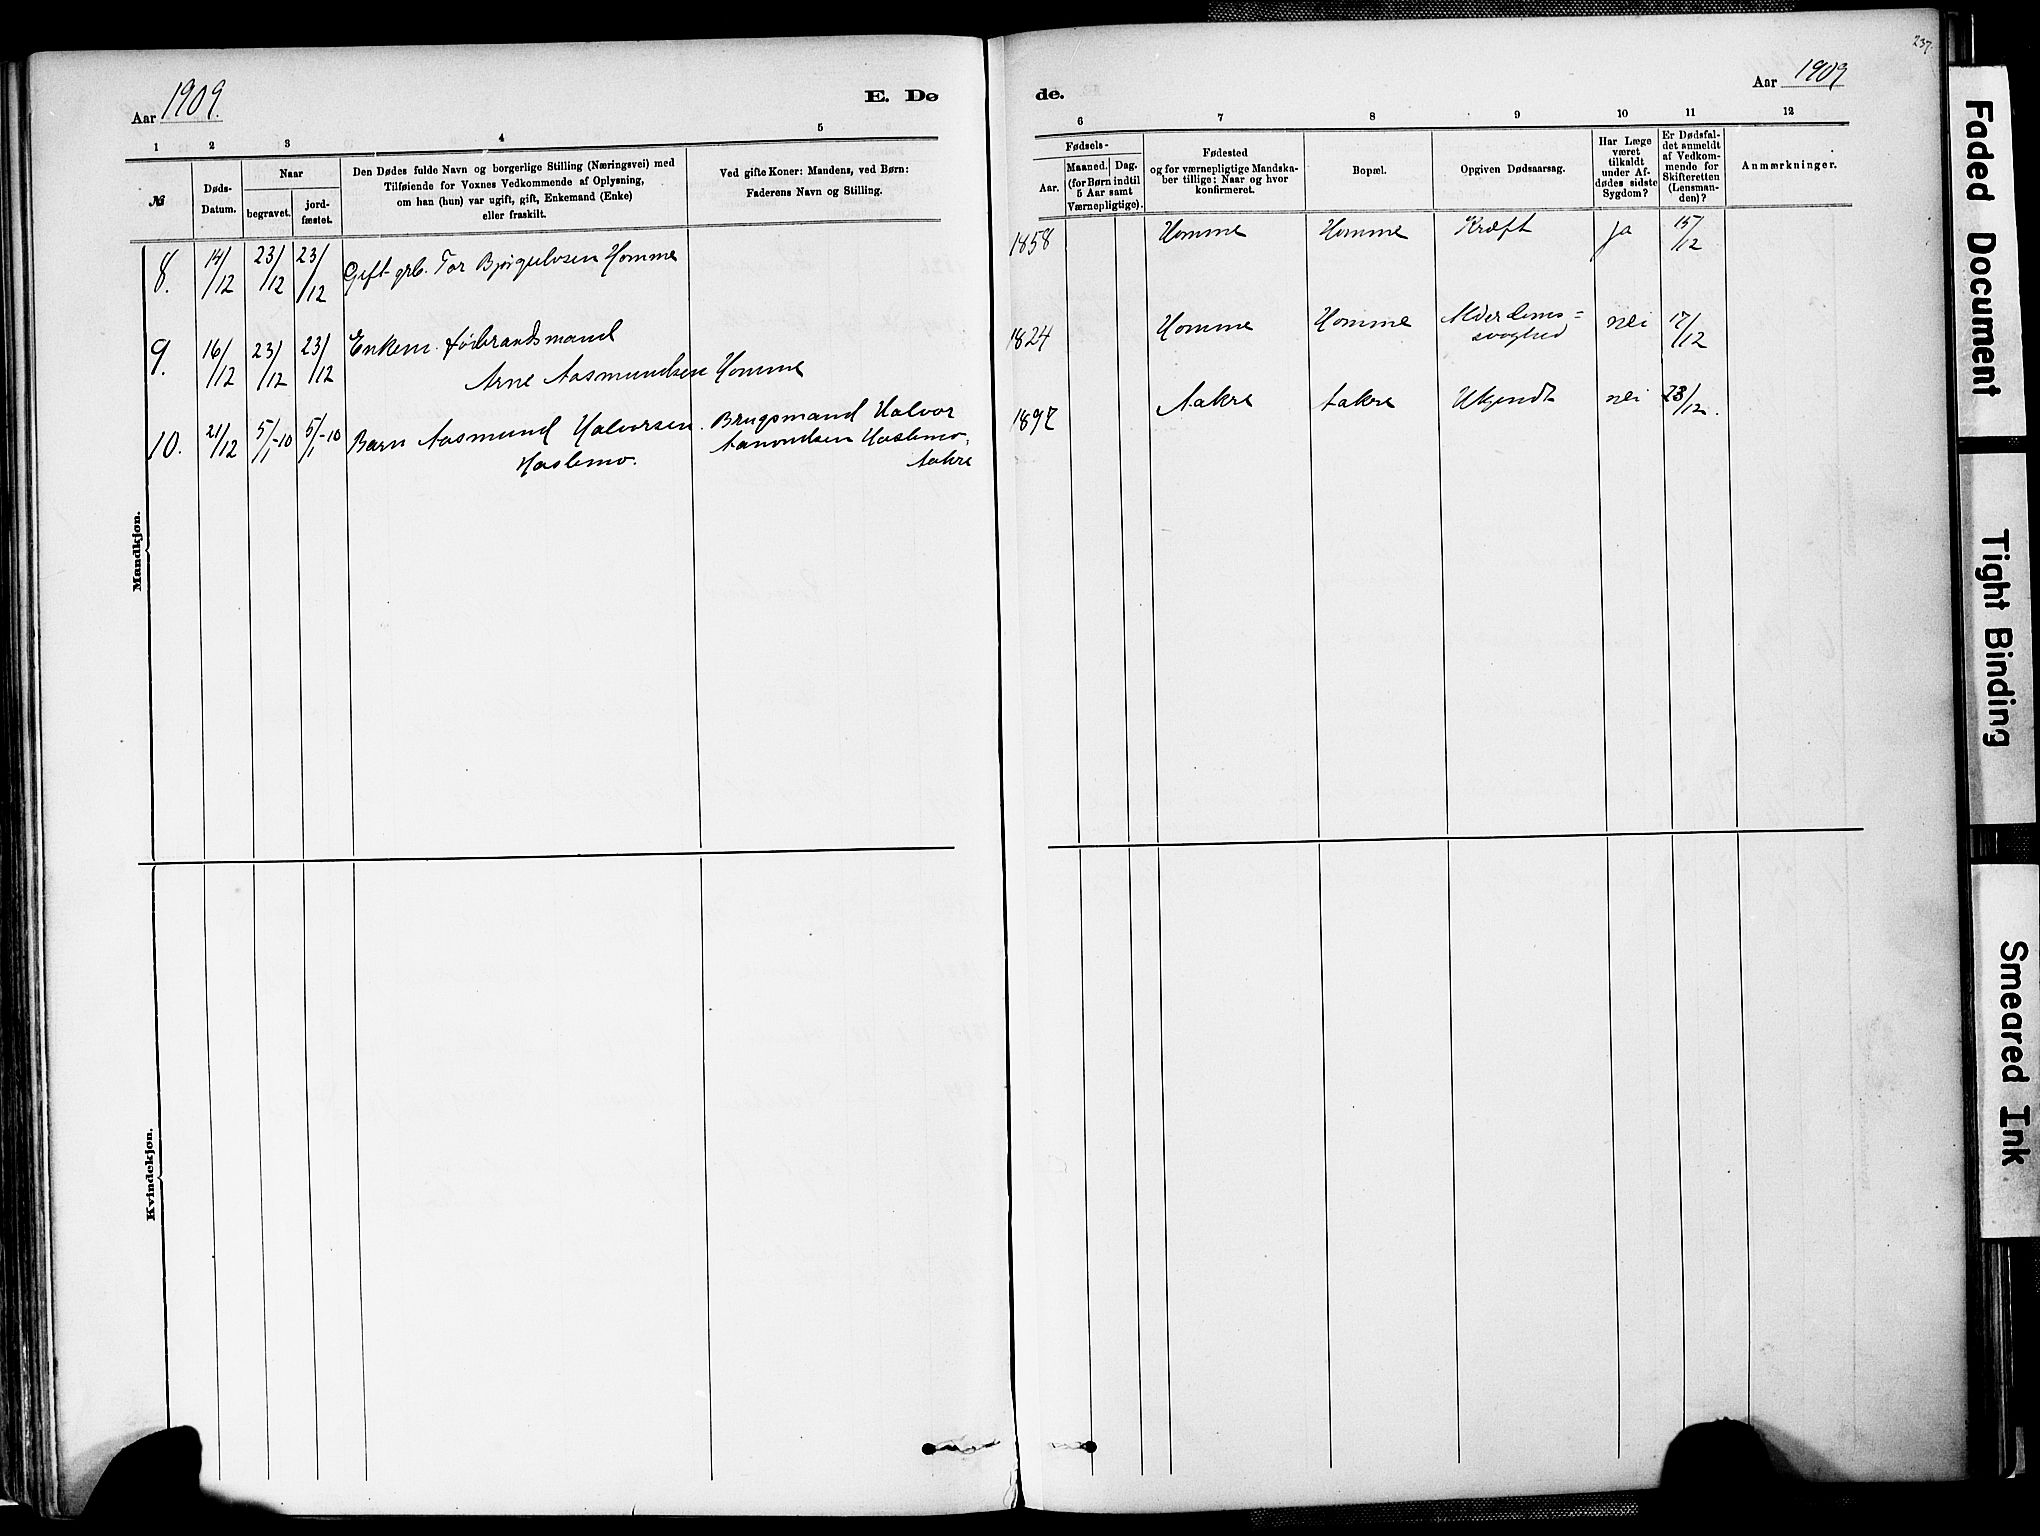 237.
Aar 1909.
E. Dø
de.
Aar 1909
1 2 3 4 5
6 7 8 9 10 11 12
№
Døds-
Datum.
Naar
begravet.
jord-
fæstet.
Den Dødes fulde Navn og borgerlige Stilling (Næringsvei) med
Tilføiende for Voxnes Vedkommende af Oplysning,
om han (hun) var ugift, gift, Enkemand (Enke)
eller fraskilt.
Ved gifte Koner: Mandens, ved Børn:
Faderens Navn og Stilling.
Fødsels-
Aar.
Maaned.
Dag.
(for Børn indtil
5 Aar samt
Værnepligtige).
Fødested
og for værnepligtige Mandska-
ber tillige: Naar og hvor
konfirmeret.
Bopæl.
Opgiven Dødsaarsag.
Har Læge
været
tilkaldt
under Af-
dødes sidste
Sygdom?
Er Dødsfal-
det anmeldt
af Vedkom-
mende for
Skifteretten
(Lensman-
den)?
Anmærkninger.
Mandkjøn.
8. 14/12 23/12 23/12 Gift grb. Tor Bjørgulvsen Homme
1858 Homme Homme Kræft ja 15/12
9. 16/12 23/12 23/12 Enkem.
Arne Aasmundsen Homme
1824 Homme Homme Alderdoms=
svaghed nei 17/12
10. 21/12 5/1-10 5/1-10 Barn Aasmund Halvorsen. Brugsmand Halvor
Haslemo. Aanondsen Haslemo,
Aakre
1897 Aakre Aakre Ukjendt nei 23/12.
Kvindekjøn.
Faded Document
Tight Binding
Smeared Ink